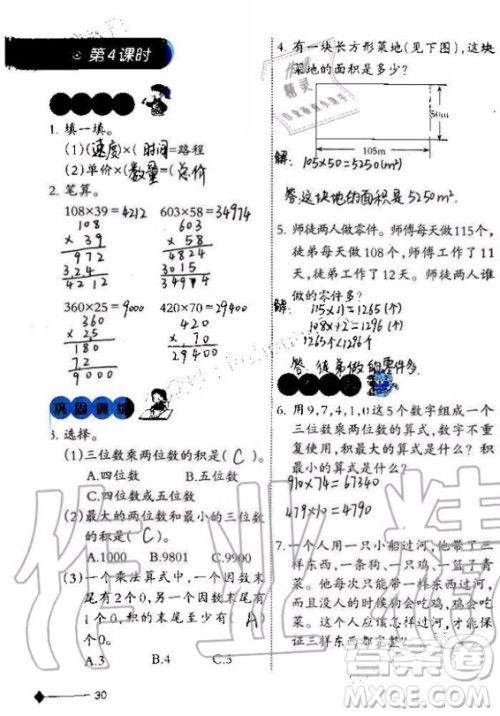 第4课时
1. 填一填。
(1)(速度)×(时间)=路程
(2)单价×(数量)=(总价)
2. 笔算。
108×39=4212 603×58=34974
108 603
× 39 × 58
972 4824
3,24 3015
4212 34974
360×25=9000 420×70=29400
360 420
× 25 × 70
180 29400
7,2
9000
巩固训练
3. 选择。
(1)三位数乘两位数的积是( C )。
A.四位数 B.五位数
C.四位数或五位数
(2)最大的两位数和最小的三位数
的积是( C )。
A.1000 B.9801 C.9900
(3)一个乘法算式中,一个因数末
尾有2个0,另一个因数末尾有
1个0,积的末尾至少有( A )
个0。
A.3 B.4 C.5
30
4. 有一块长方形菜地(见下图),这块
菜地的面积是多少?
50m
105m
解:
105×50=5250(m²)
答:这块地的面积是5250m².
5. 师徒两人做零件。师傅每天做115个,
徒弟每天做108个,师傅工作了11
天,徒弟工作了12天。师徒两人谁
做的零件多?
解: 115×11=1265(个)
108×12=1296(个)
1265<1296
答:徒弟做的零件多.
6. 用9,7,4,1,0这5个数字组成一个
三位数乘两位数的算式,数字不重
复使用。积最大的算式是什么?积
最小的算式是什么?
910×74=67340
479×10=4790
7. 一个人用一只小船过河,他带了三
样东西,一条狗、一只鸡、一篮子青
菜。因为船小,一次只能带一样东
西,人不在的时候狗会吃鸡,鸡会吃
菜。这个人该怎样过河,才能保证
三样东西都完整
作业精
答案圈
MXQE.COM